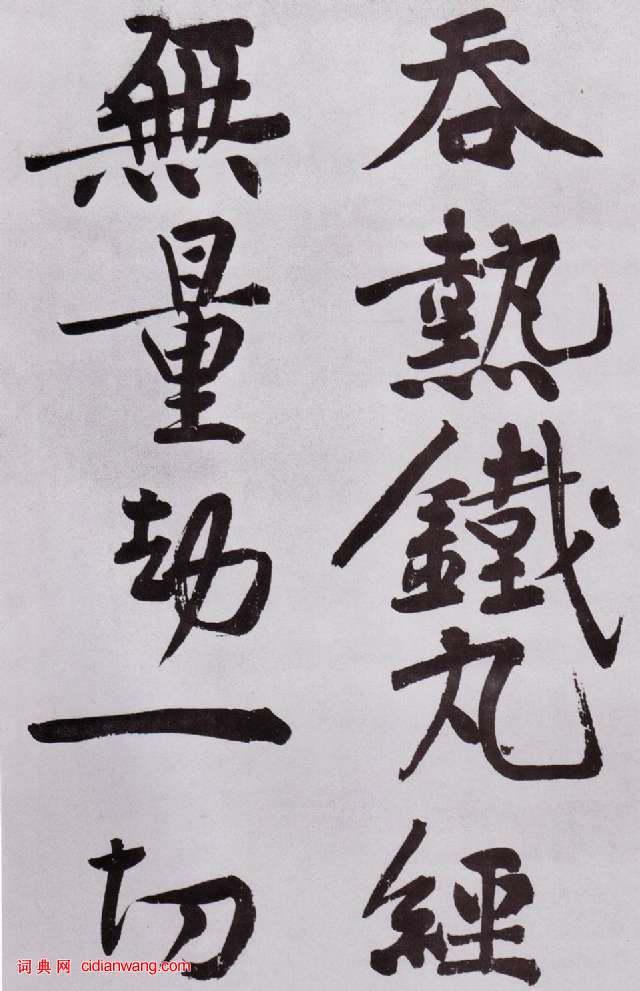 吞熱鐵丸經
無量劫一切
词典网 cidianwang.com